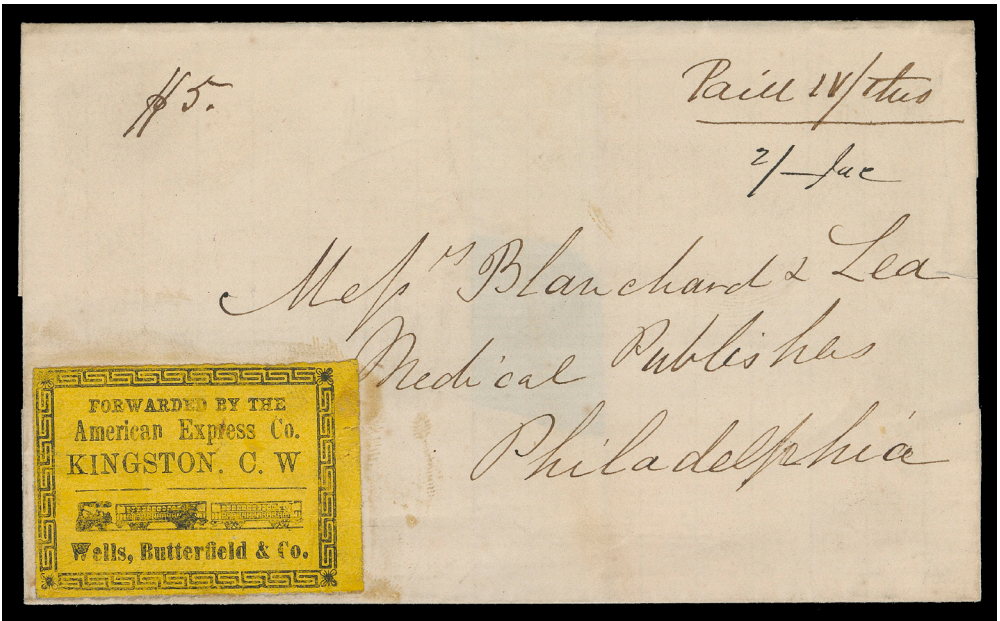 $5.
Paid
2/—
Mess rs Blanchard & Lea
Medical Publishers
Philadelphia
FORWARDED BY THE
American Express Co.
KINGSTON. C. W
Wells, Butterfield & Co.